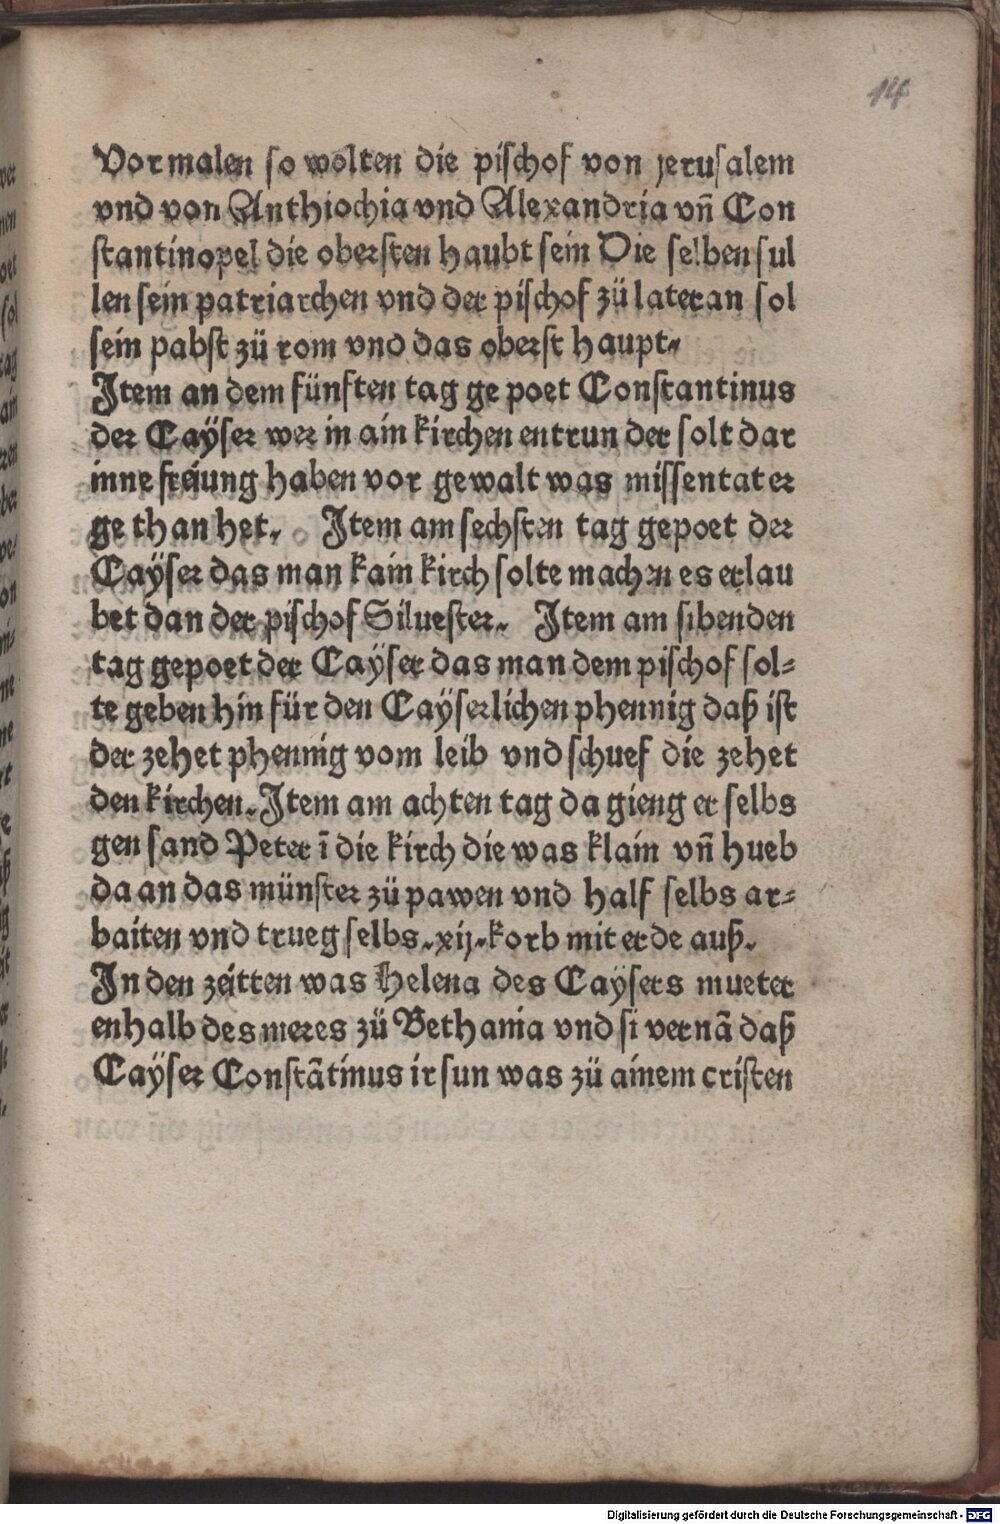 14
Vormalen so wolten die pischof von jerusalem
vnd von Anthiochia vnd Alexandria vñ Con
stantinopel die obersten haubt sein Die selben sul
len sein patriarchen vnd der pischof zü lateran sol
sein pabst zü rom vnd das oberst haupt.
Item an dem fünften tag ge poet Constantinus
der Caÿser wer in ain kirchen entrun der solt dar
inne freiung haben vor gewalt was missentat er
ge than het. Item am sechsten tag gepoet der
Caÿser das man kain kirch solte machen es erlau
bet dan der pischof Siluester. Item am sibenden
tag gepoet der Caÿser das man dem pischof sol⸗
te geben hin für den Caÿserlichen phennig daß ist
der zehet phennig vom leib vnd schuef die zehet
den kirchen. Item am achten tag da gieng er selbs
gen sand Peter ī die kirch die was klain vñ hueb
da an das münster zü pawen vnd half selbs ar⸗
baiten vnd trueg selbs .xij. korb mit erde auß.
In den zeitten was Helena des Caÿsers mueter
enhalb des meres zü Bethania vnd si vernã daß
Caÿser Constãtinus ir sun was zü ainem cristen
Digitalisierung gefördert durch die Deutsche Forschungsgemeinschaft - DFG